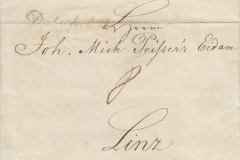 Herrn
Joh. Mich Peisser's Eidam
8
Linz